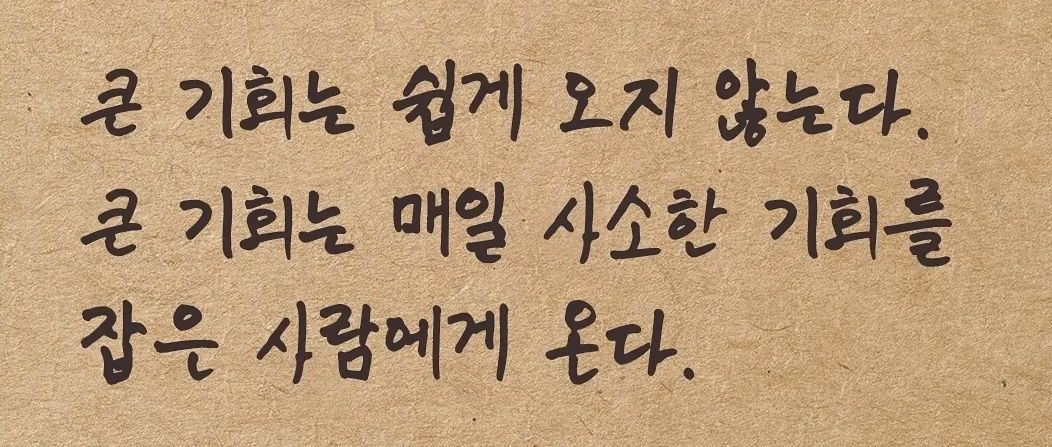 큰 기회는 쉽게 오지 않는다.
큰 기회는 매일 사소한 기회를
잡은 사람에게 온다.